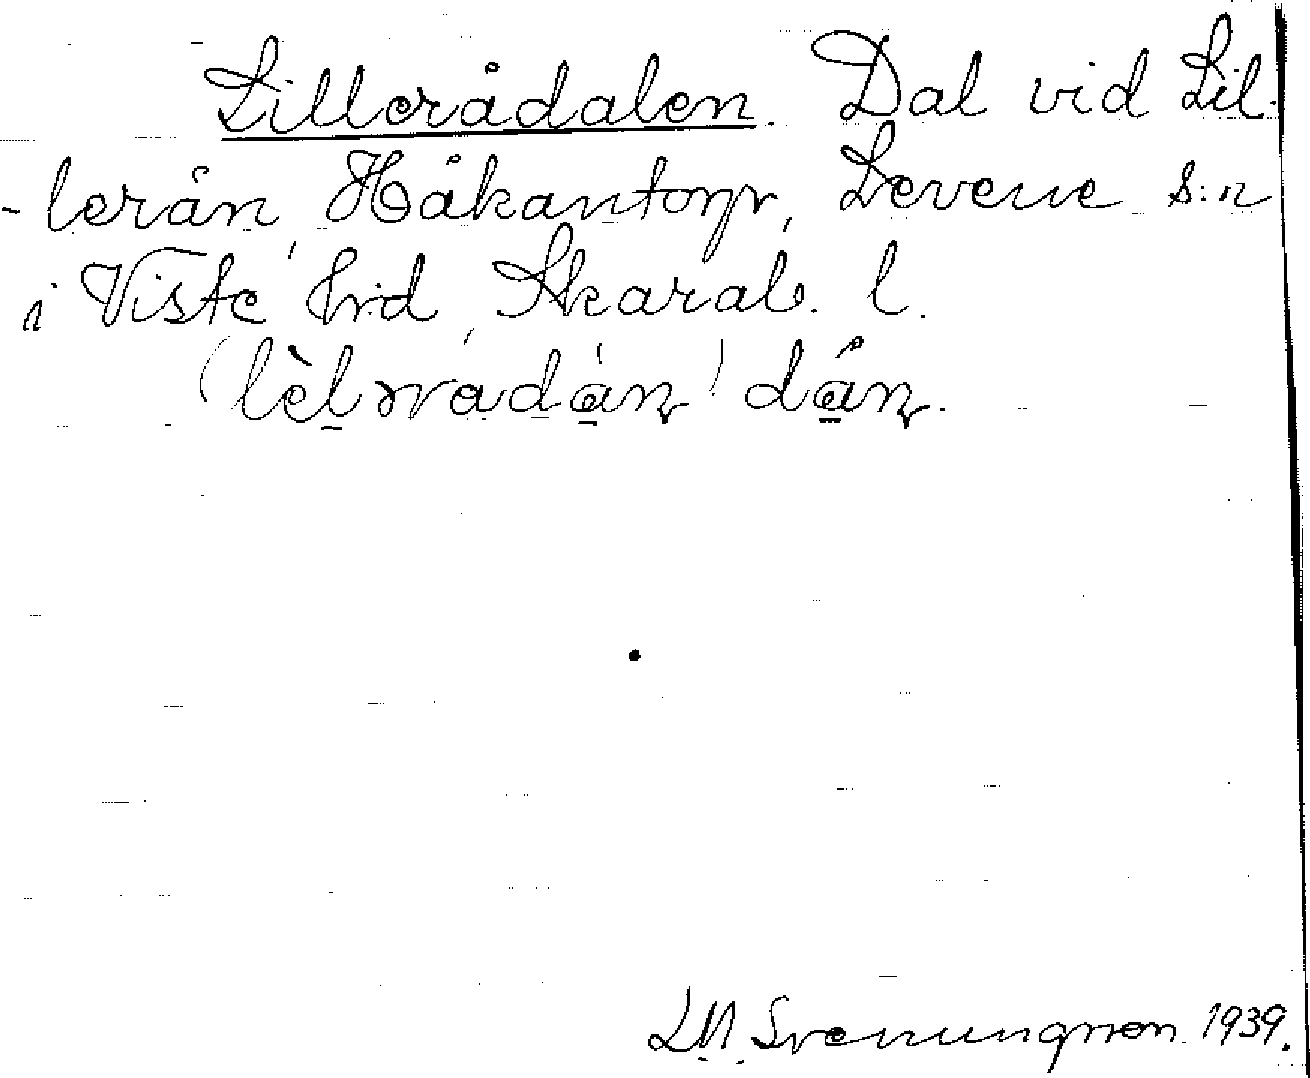 Lillerådalen. Dal vid Lil-
-lerån, Håkantorp, Levene s:n
i Viste hrd, Skarab. l.
L M Svenungsson 1939.